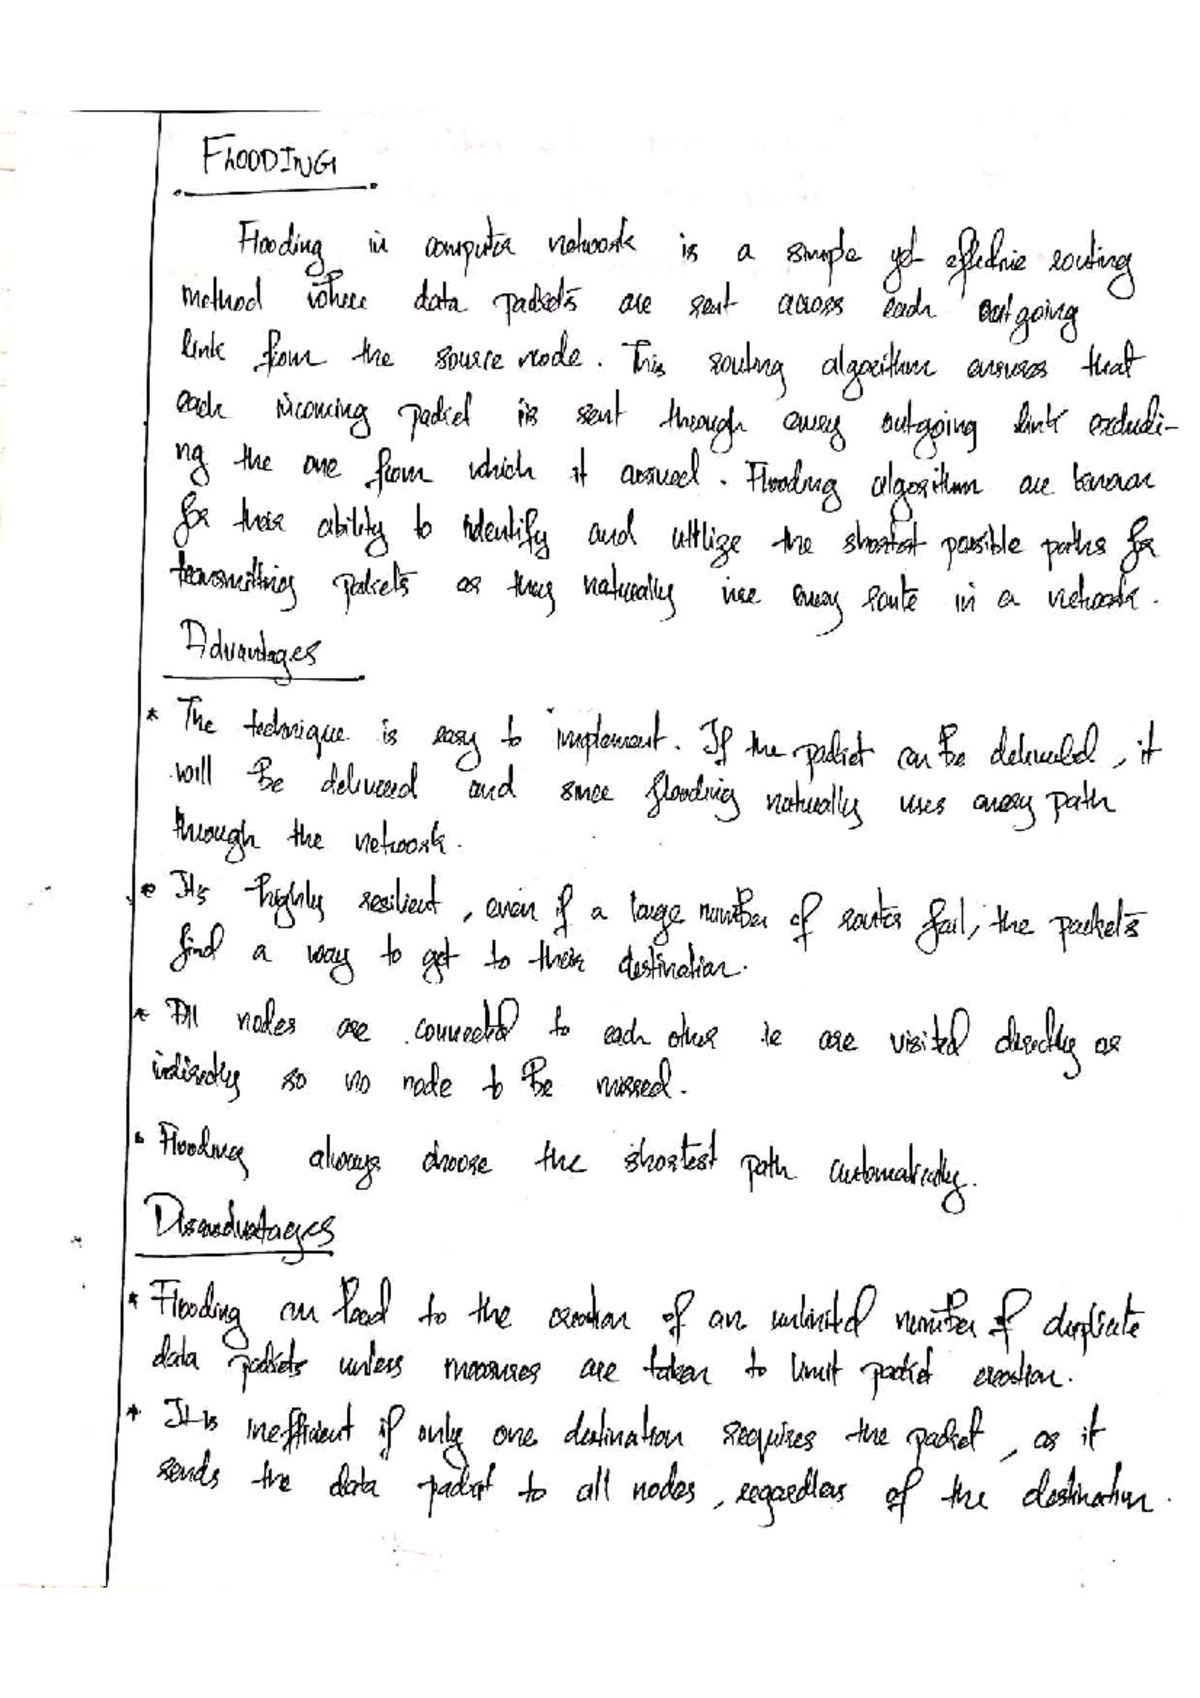 FLOODING
Flooding in computer network is a simple yet effective routing
method where data packets are sent across each outgoing
link from the source node. This routing algorithm ensures that
each incoming packet is sent through every outgoing link excludi-
ng the one from which it arrived. Flooding algorithm are known
for their ability to identify and utilize the shortest possible paths for
transmitting packets as they naturally use every route in a network.
Advantages
* The technique is easy to implement. If the packet can be delivered, it
will be delivered and since flooding naturally uses every path
through the network.
* It's highly resilient, even if a large number of router fail, the packets
find a way to get to their destination.
* All nodes are connected to each other ie are visited directly or
indirectly so no node to be missed.
• Flooding always choose the shortest path automatically.
Disadvantages
* Flooding can lead to the creation of an unlimited number of duplicate
data packets unless measures are taken to limit packet creation.
* It is inefficient if only one destination requires the packet, as it
sends the data packet to all nodes, regardless of the destination.